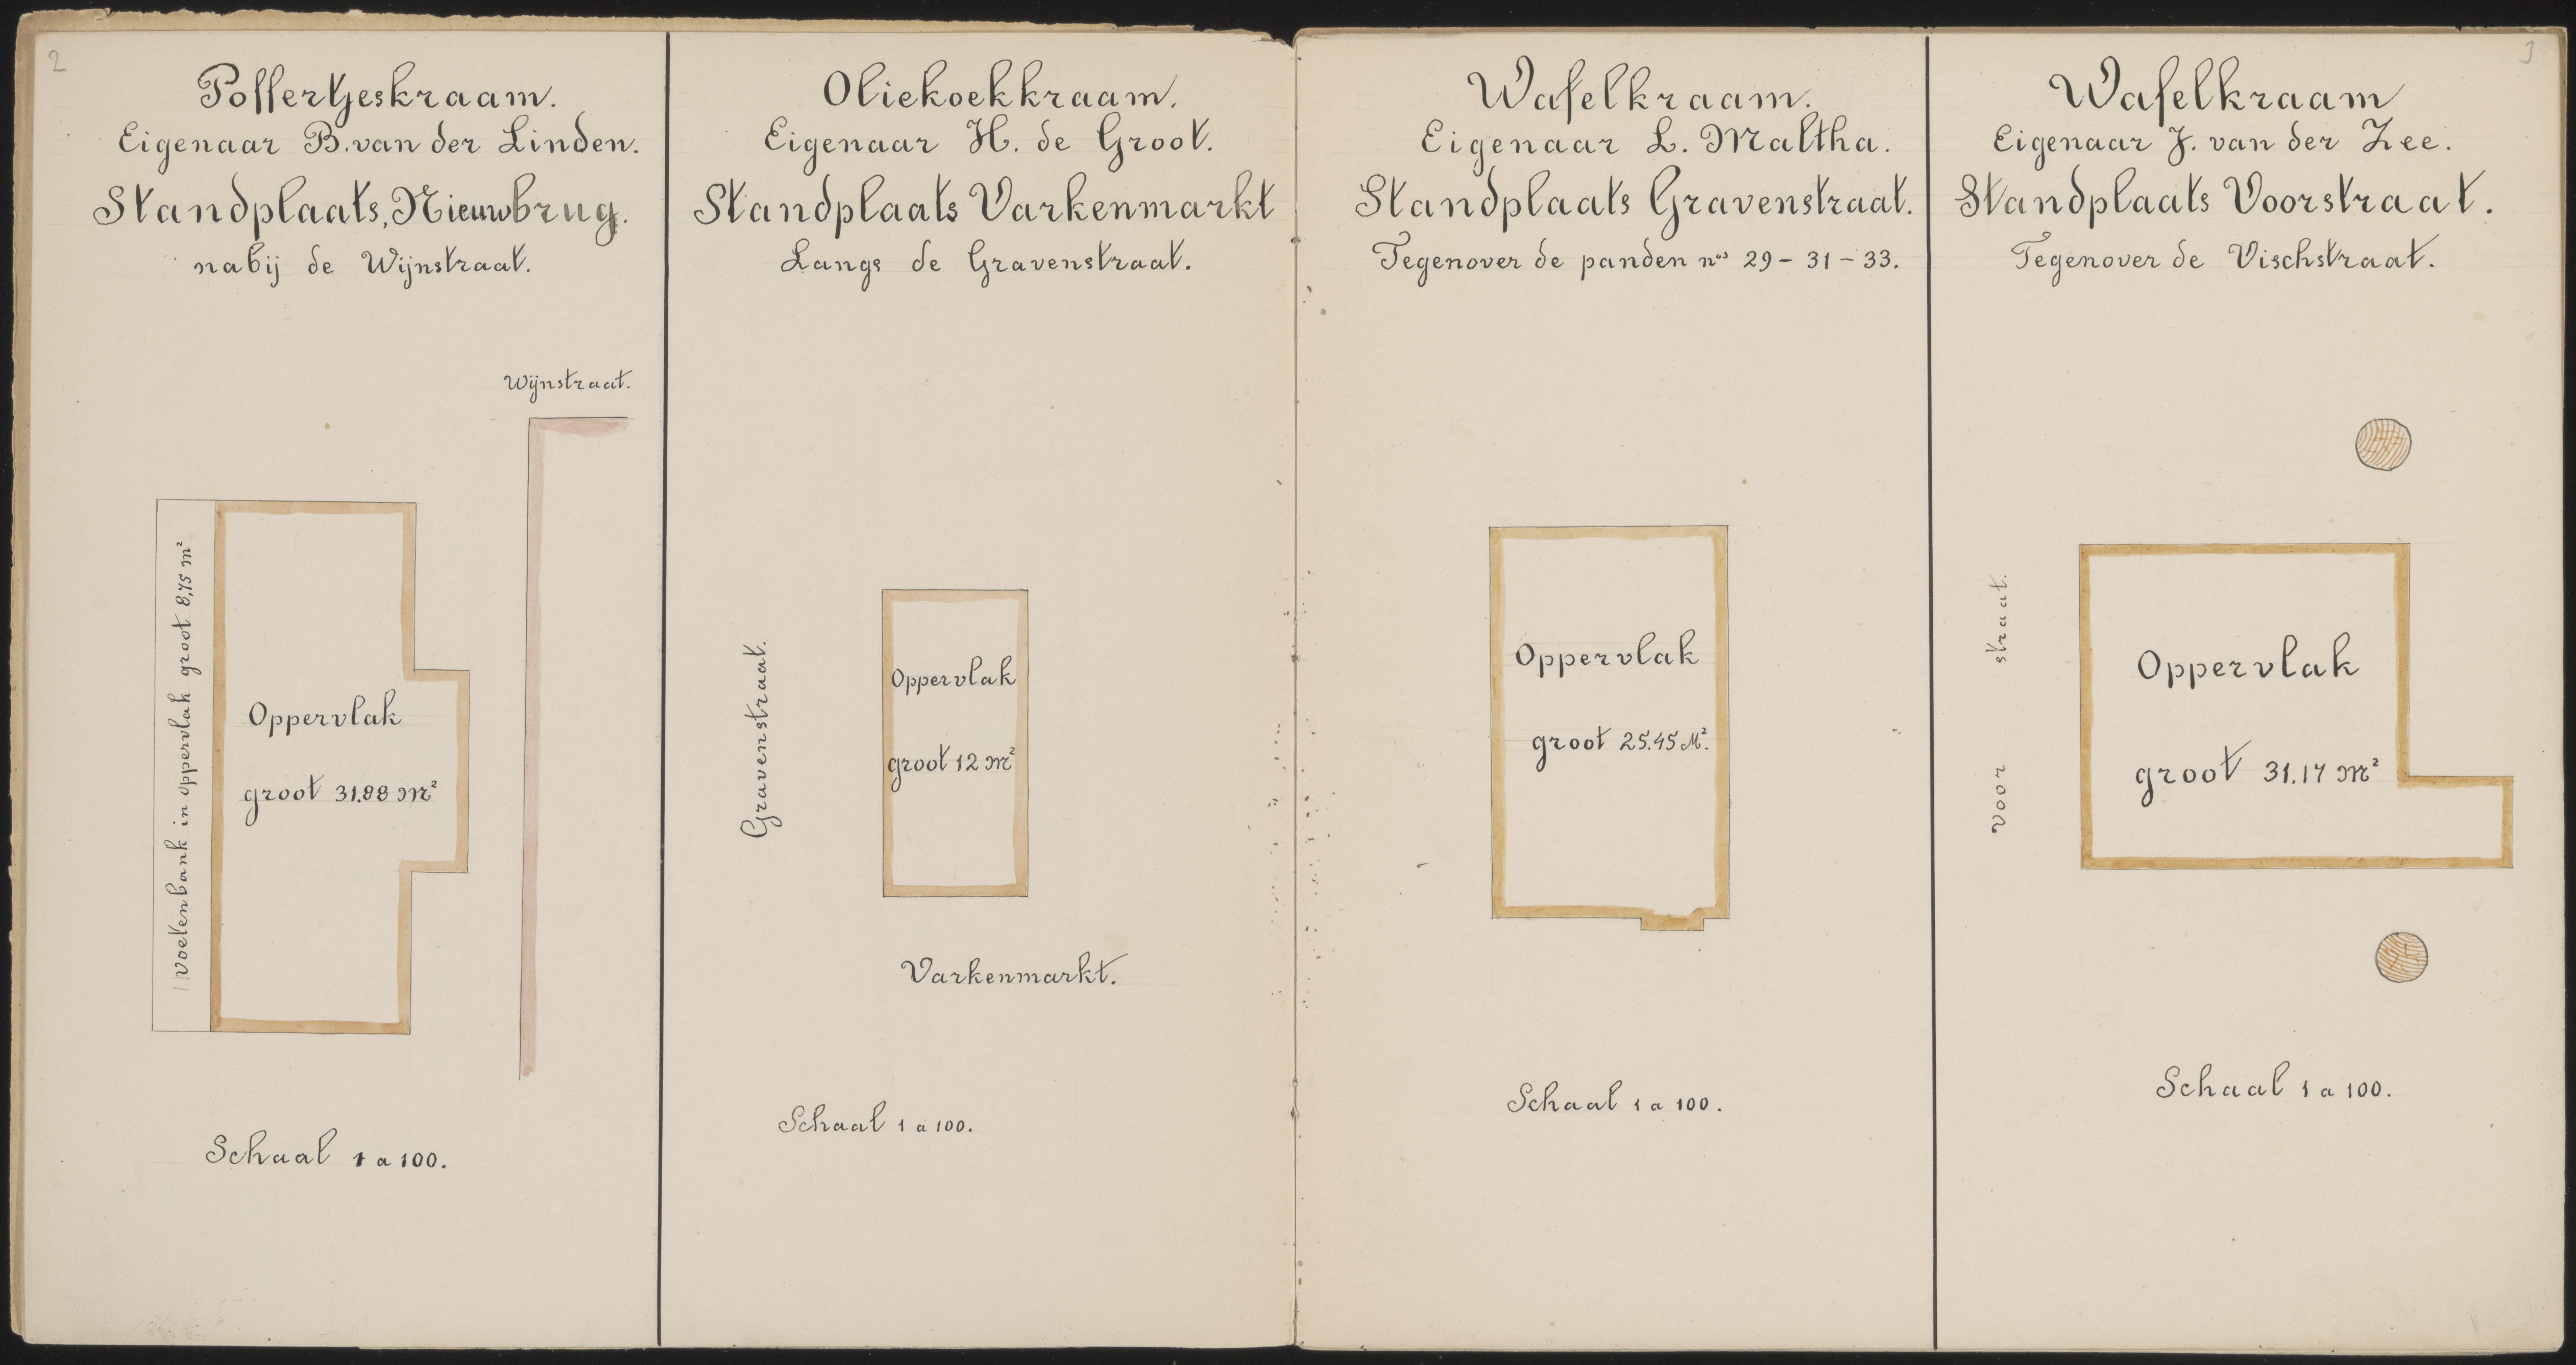 2
Poffertjeskraam.
Eigenaar B. van der Linden.
Standplaats, Nieuwbrug.
nabij de Wijnstraat.
Wijnstraat.
Voetenbank in oppervlak groot 8,75 m²
Oppervlak
groot 31.88 M²
Schaal 1 a 100.
Oliekoekkraam.
Eigenaar H. de Groot.
Standplaats Varkenmarkt
Langs de Gravenstraat.
Gravenstraat.
Oppervlak
groot 12 M²
Varkenmarkt.
Schaal 1 a 100.
Wafelkraam.
Eigenaar L. Maltha.
Standplaats Gravenstraat.
Tegenover de panden nos 29 - 31 - 33.
Oppervlak
groot 25.45 M².
Schaal 1 a 100.
3
Wafelkraam
Eigenaar J. van der Zee.
Standplaats Voorstraat.
Tegenover de Vischstraat.
voor straat.
Oppervlak
groot 31.17 M²
Schaal 1 a 100.